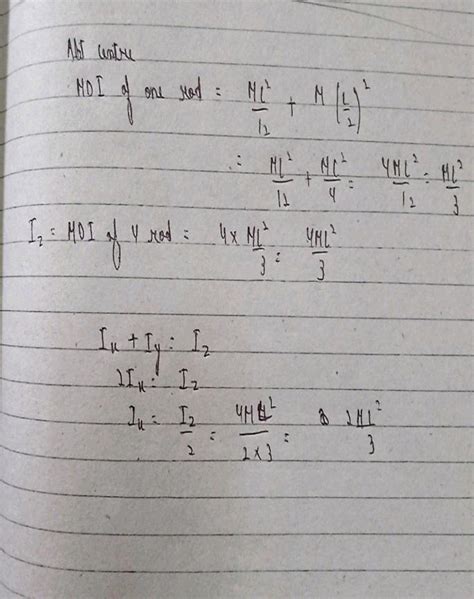 Abt centre
MOI of one rod = ML²/12 + M(L/2)²
= ML²/12 + ML²/4 = 4ML²/12 = ML²/3
I₂ = MOI of 4 rod = 4 × ML²/3 = 4ML²/3
Iₓ + Iᵧ = I₂
2Iₓ = I₂
Iₓ = I₂/2 = 4ML²/2×3 = 2ML²/3